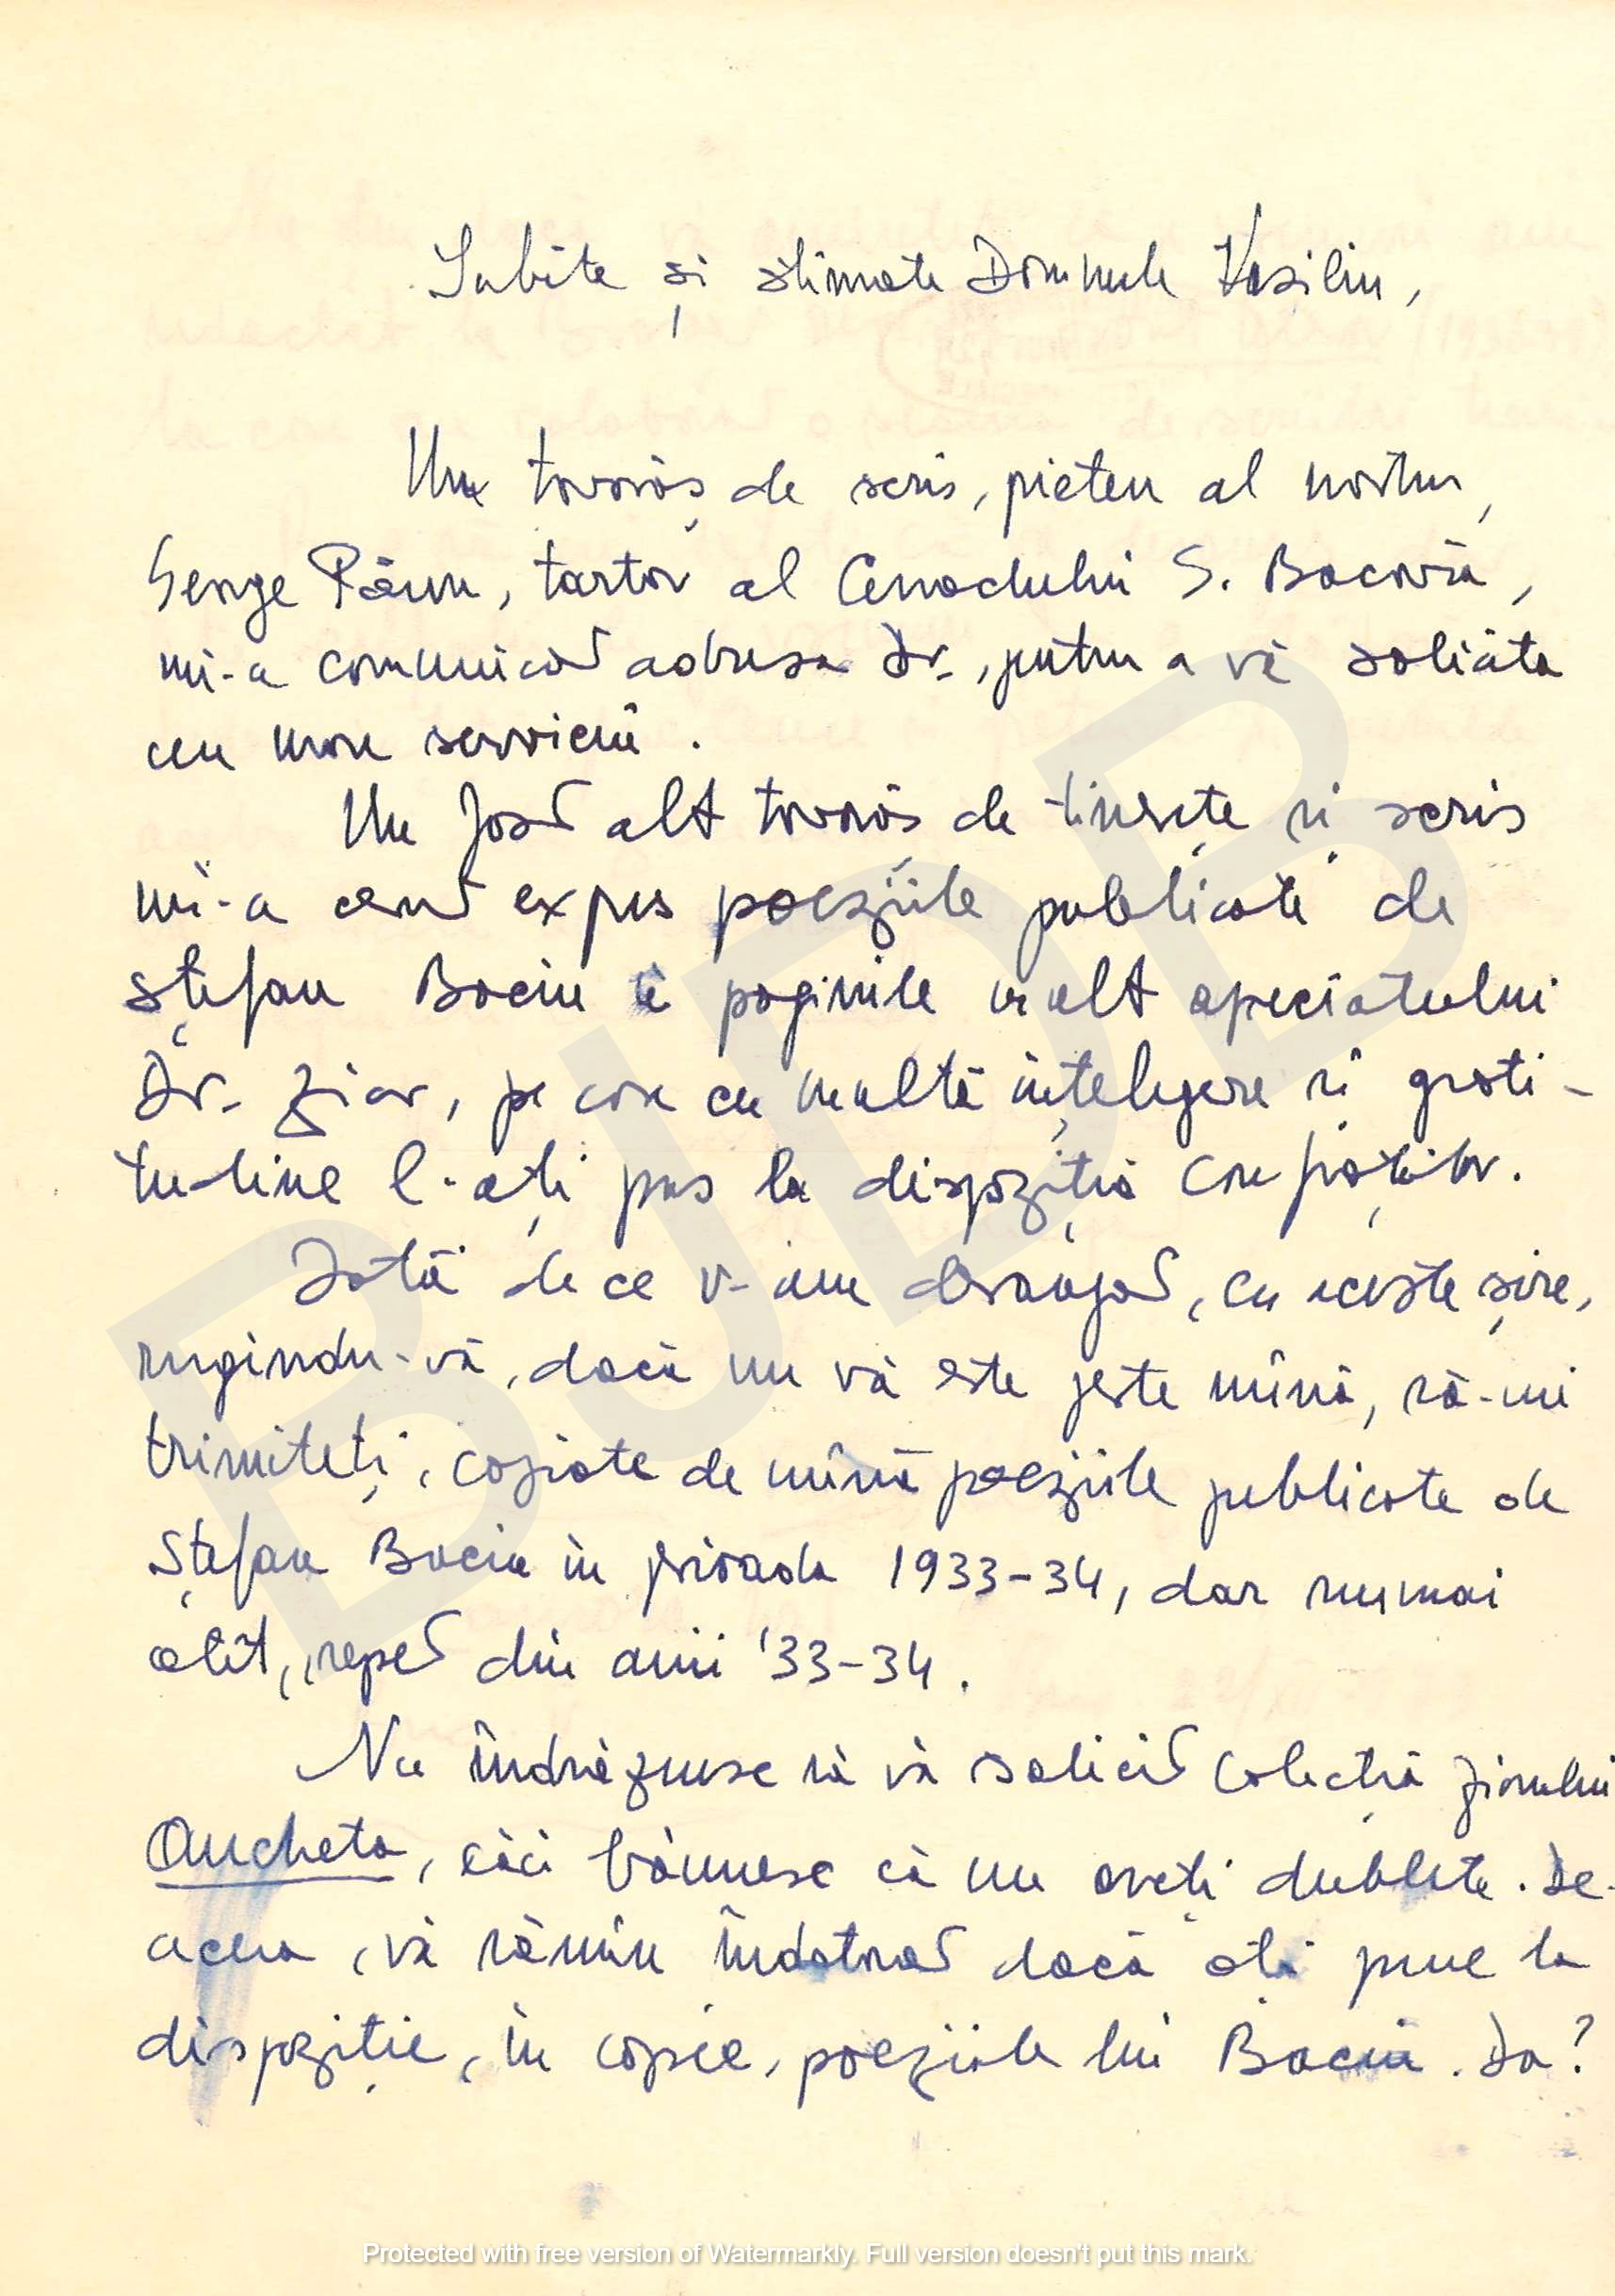 Iubite și stimate Domnule Vasiliu,
Un tovarăș de scris, prieten al nostru,
George Pârvu, tartor al Cenaclului G. Bacovia,
mi-a comunicat adresa Dv., pentru a vă solicita
un mare serviciu.
Un fost alt tovarăș de tinerețe și scris
mi-a cerut expres poeziile publicate de
Ștefan Baciu în paginile mult apreciatului
Dv. ziar, pe care cu multă înțelegere și grati-
tudine l-ați pus la dispoziția confraților.
Iată de ce v-am deranjat, cu aceste șire,
rugîndu-vă, dacă nu vă este peste mînă, să-mi
trimiteți, copiate de mînă poeziile publicate de
Ștefan Baciu în perioada 1933-34, dar numai
atît, repet din anii '33-34.
Nu îndrăznesc să vă solicit colecția ziarului
Ancheta, căci bănuesc că nu aveți dublete. De-
aceea, vă rămîn îndatorat dacă ați pune la
dispoziție, în copie, poeziile lui Baciu. Da?
BJDB
Protected with free version of Watermarkly. Full version doesn't put this mark.